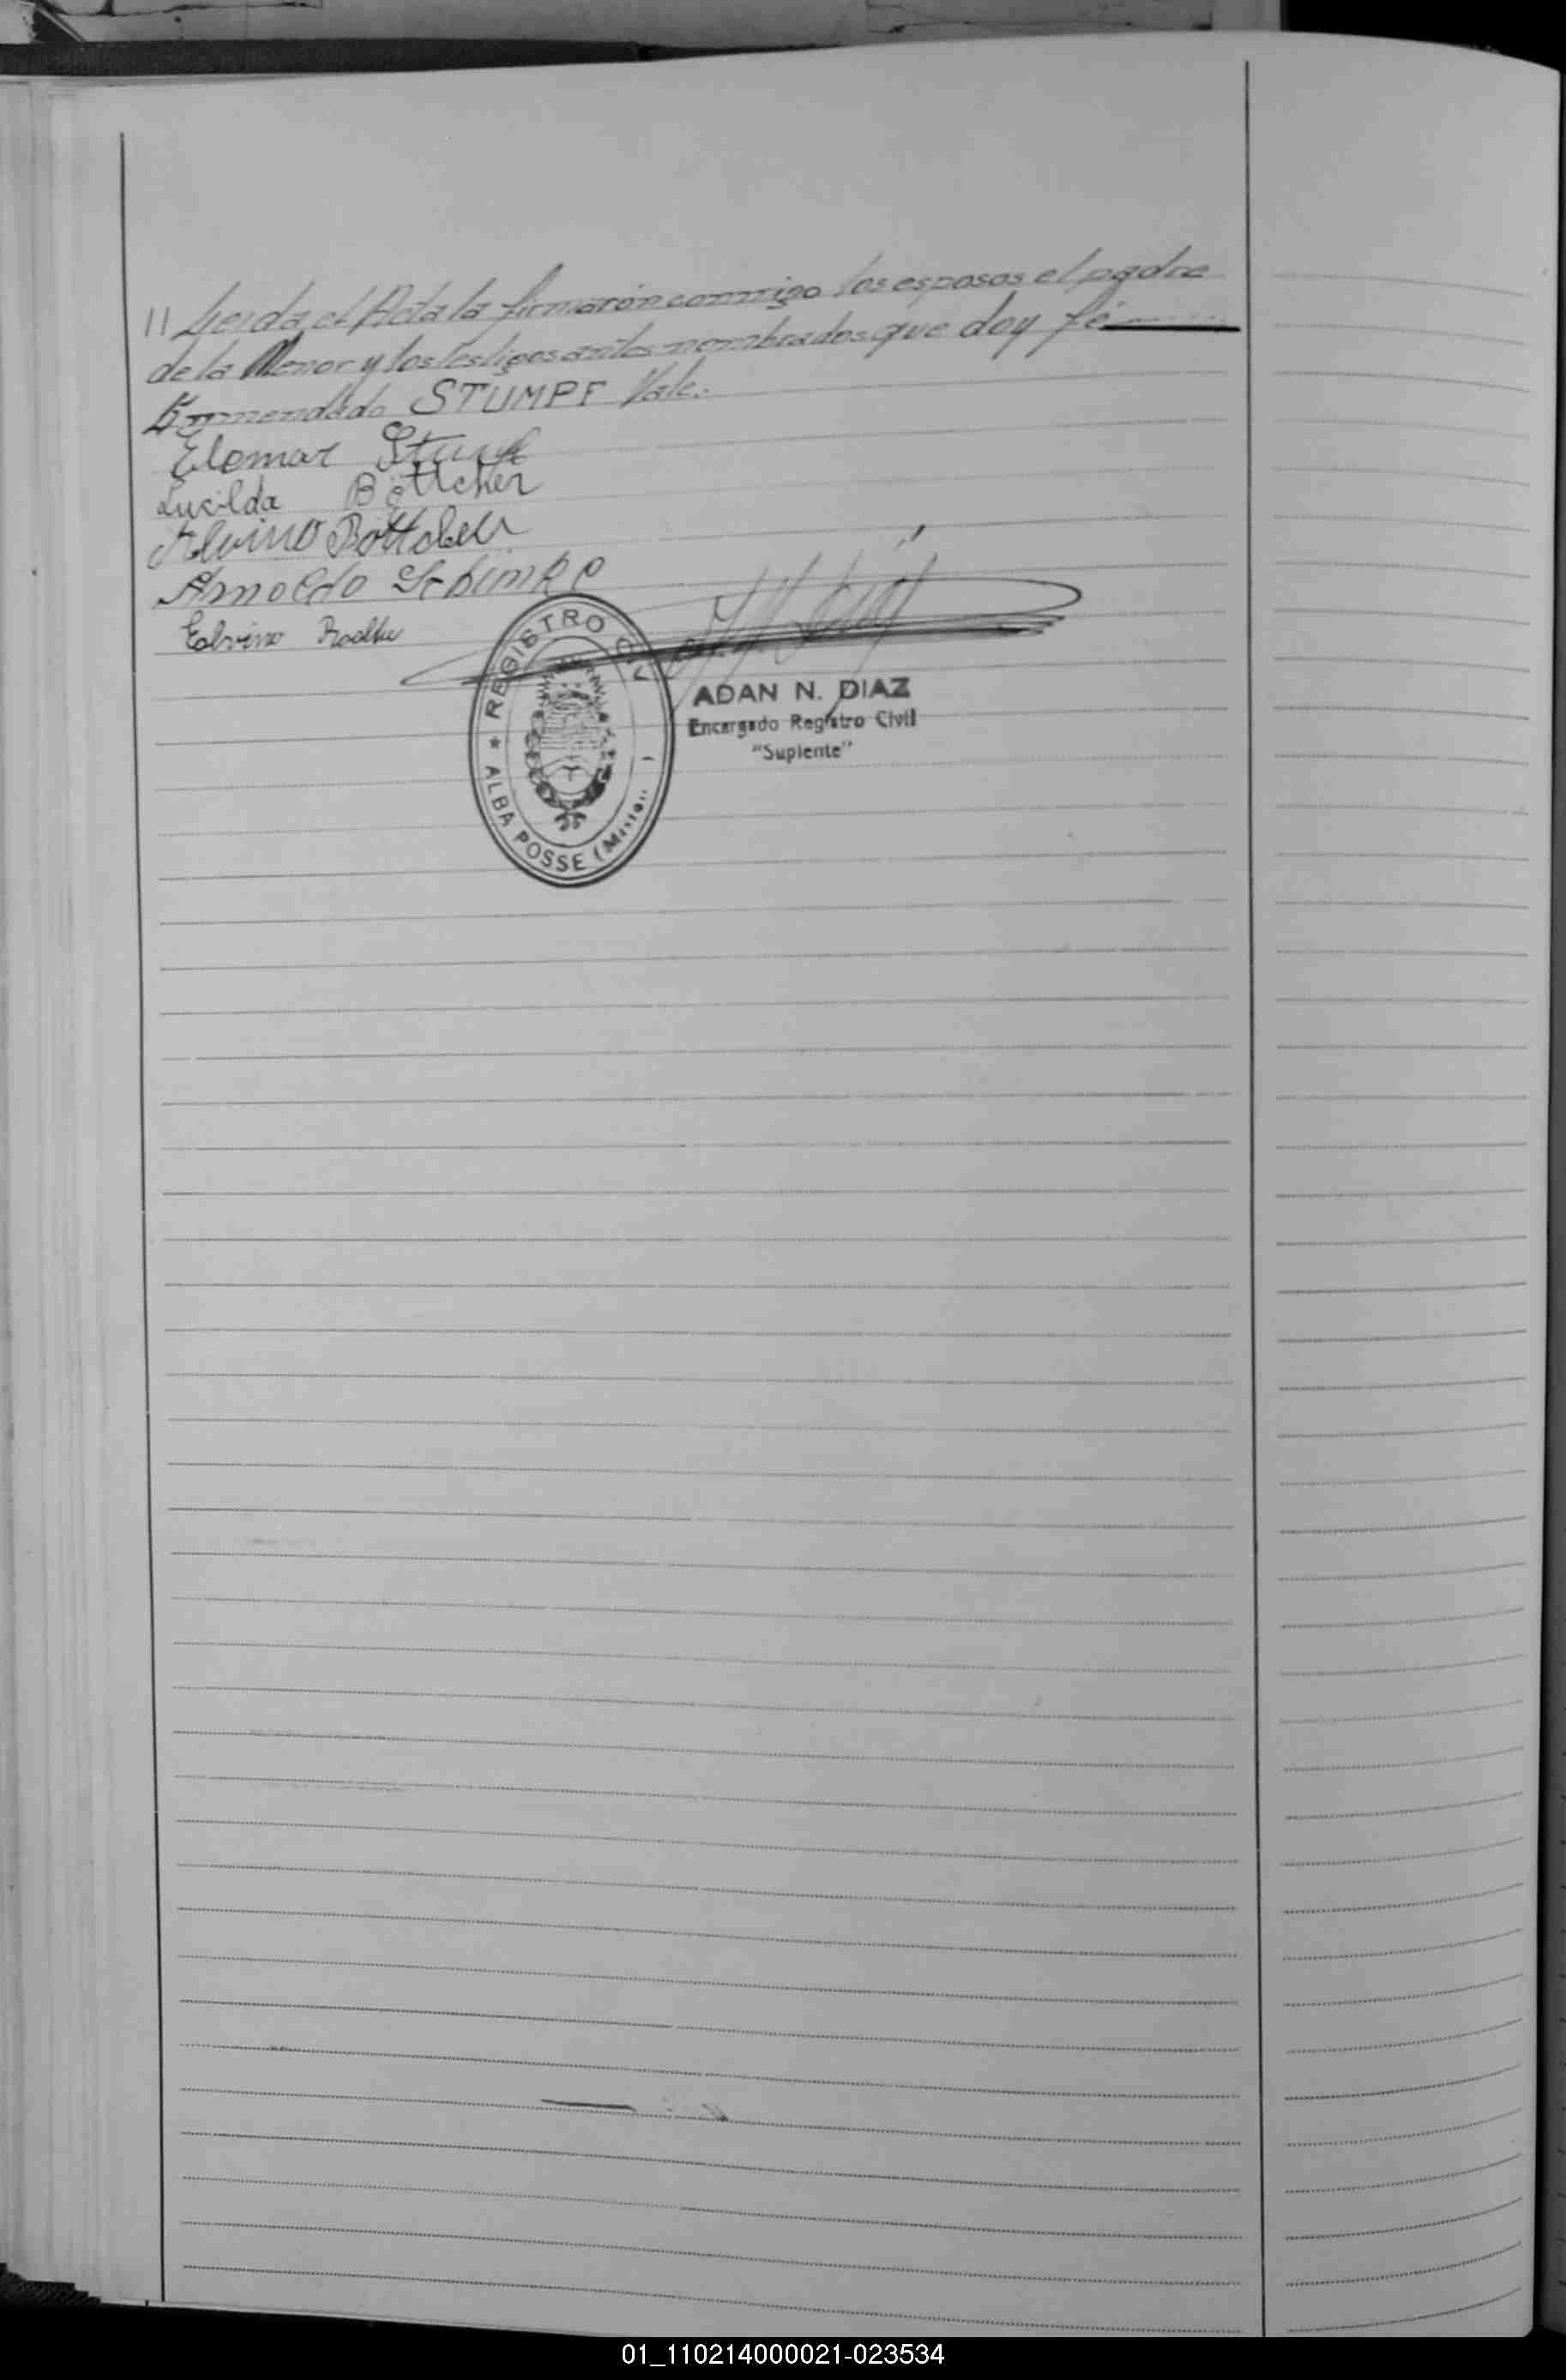 // Leida el Acta la firmarón conmigo los esposos el padre
de la Menor y los testigos antes nombrados que doy fé
Enmendado STUMPF Vale.
Elomar Stumpf
Lucilda Böttcher
Alvino Böttcher
Arnoldo Schimke
REGISTRO CIV
ALBA POSSE (Mision
ADAN N. DIAZ
Encargado Registro Civil
"Suplente"
01_110214000021-023534